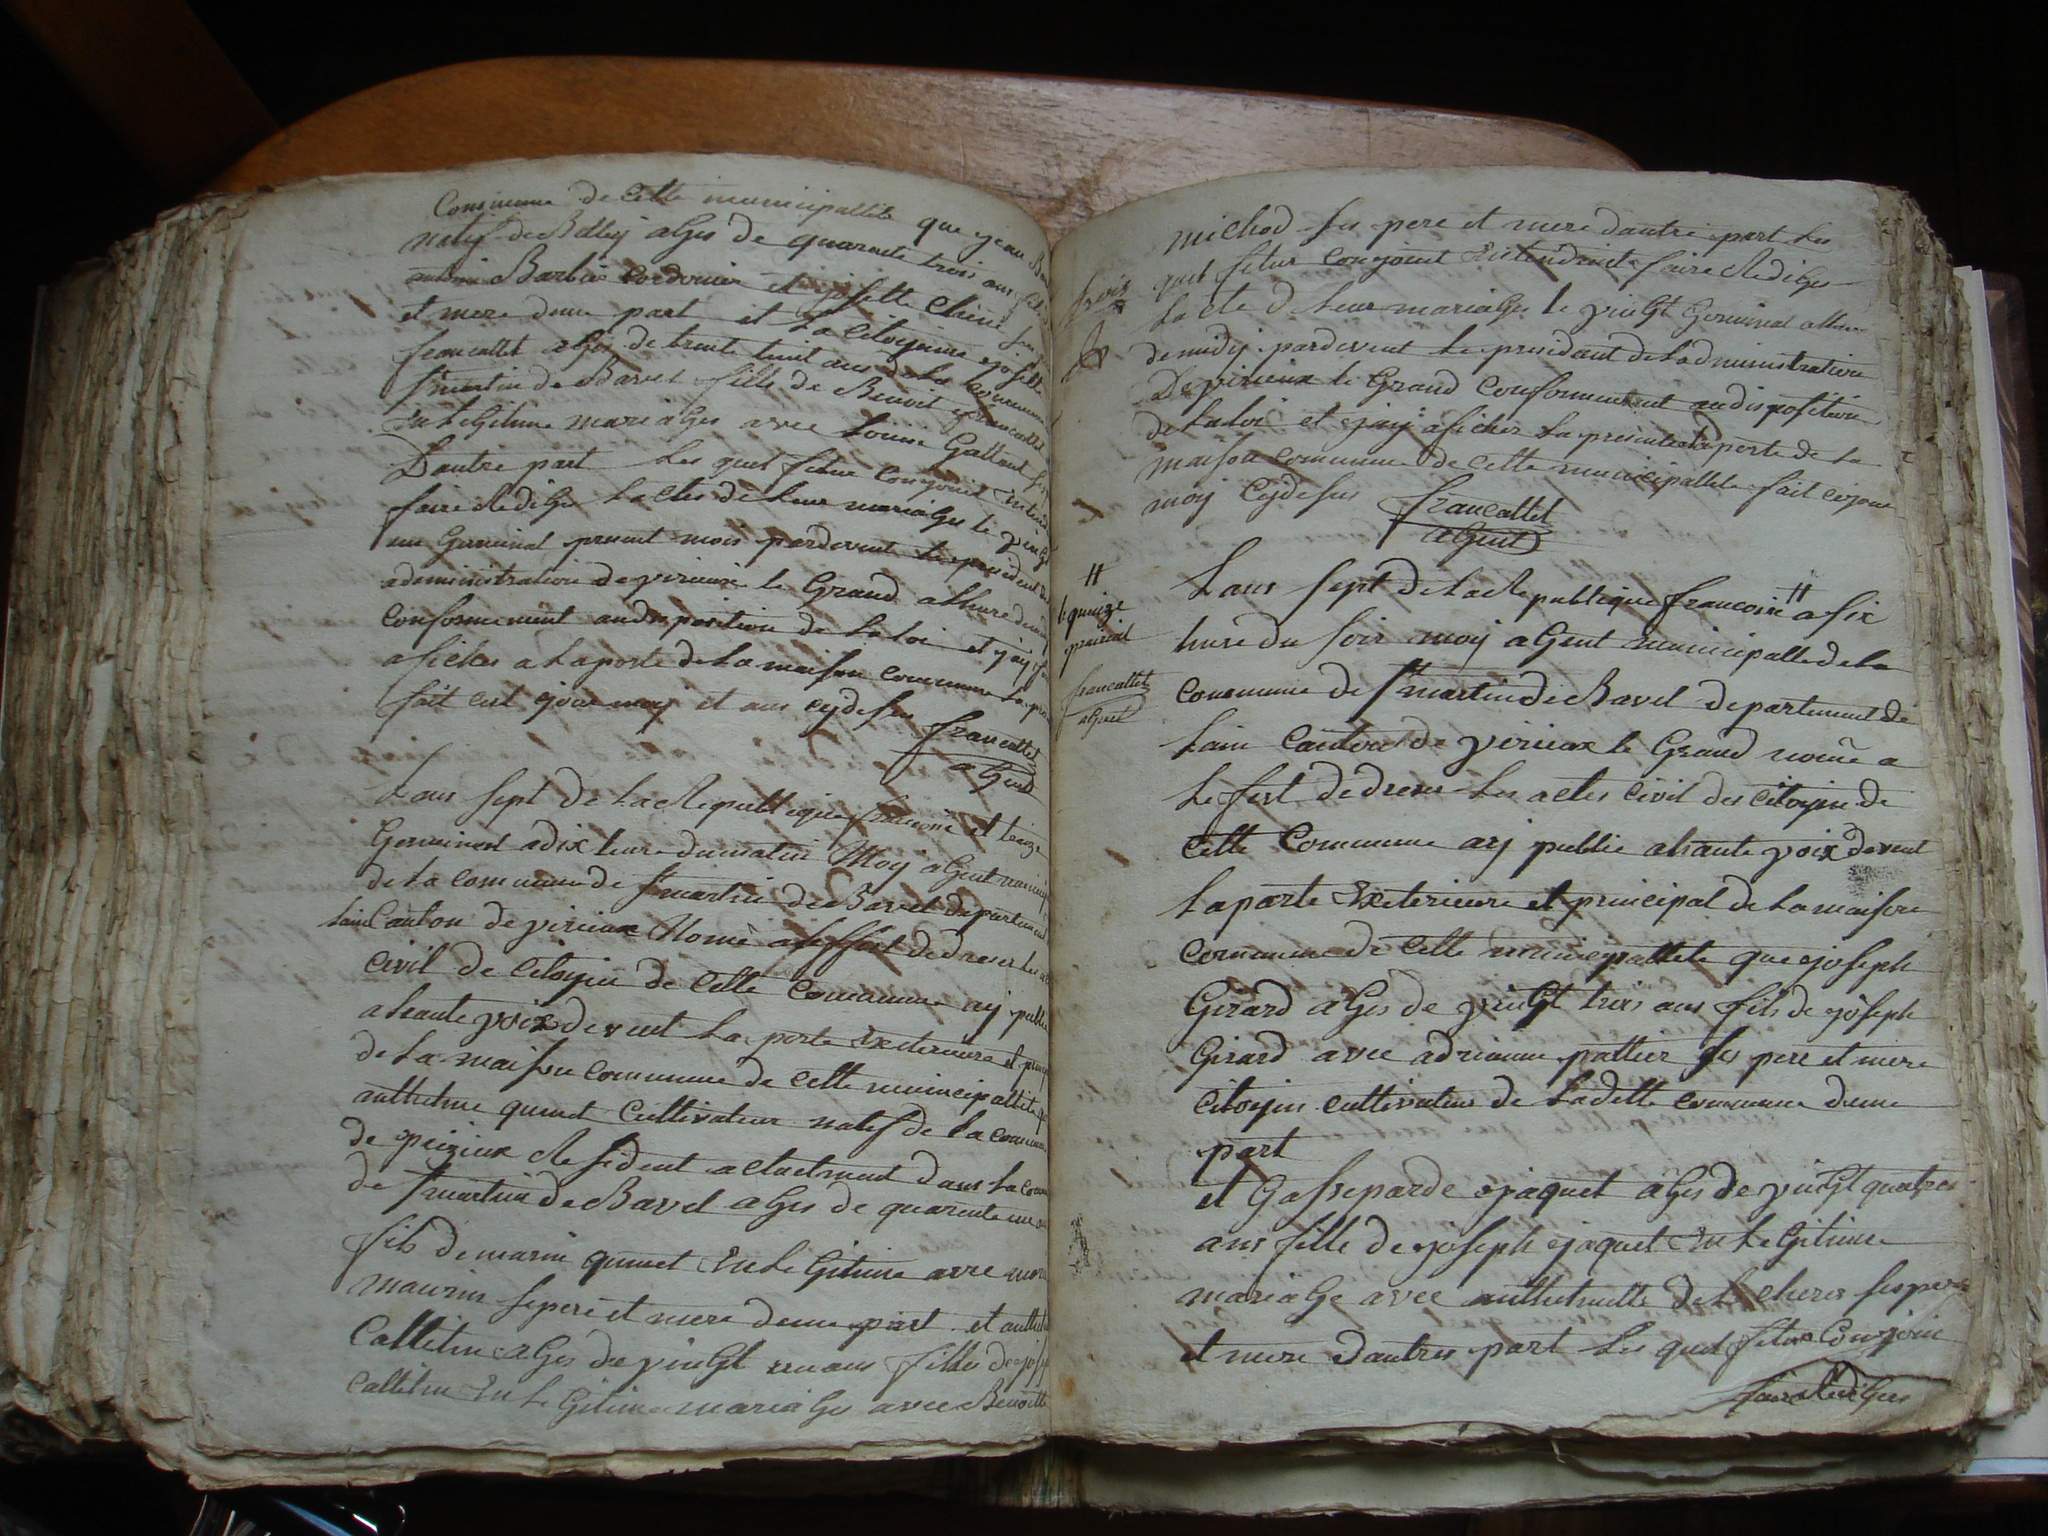 Commune de Cette municipallité que jean
natif de Belley agés de quarante trois ans fils
Barbier Cordonier et josette Chene
et mere dune part et La Citoyenne josette
francallet agés de trente huit ans de La Commune
St martin de Bavel fille de Benoit francallet
En Légitime mariages avec Louise Galland
Dautre part Les quel futur Conjoint
faire Rediger Lactes de Leur mariages le vingt
un Germinal present mois pardevent Le president
administration de virieux le Grand a lheure de
Conformement audisposition de La loi et jay
aficher a La porte de La maison commune La
fait cest jour moy et ans cydesus
francallet
agent
Lans sept de La Republique francoise et treize
Germinal a dix heure dumatin Moy agent
de La commune de St martin de Bavel departement
Lain Canton de virieux Nomé a leffest de dreser Les
civil de Citoyin de Cette Commune ay publié
a haute voix devent La porte Exterieure et
de La maison commune de cette municipallité
anthelme quinet Cultivateur natif de La commune
de virieux Resident actuelment dans La
de St martin de Bavel agés de quarente un
fils de marin quinet En Légitime avec
maurin se pere et mere dune part et
Callelin agés de vingt un ans fille de
Callelin En Légitime mariages avec Benoitte
michod ses pere et mere dautre part Les
quel futur conjoint Entendroit faire Rediger
Lacte d Leur mariages le vingt Germinal
de midy pardevent Le presidant de Ladministration
De virieux le Grand Conformement audisposition
de La loi et jay aficher La presente a La porte de La
maison commune de cette municipallité fait ce jour
moy Cydesus
francallet
agent
le quinze
prairial
francallet
agent
Lans sept de La Republique francoise a six
heure du soir moy agent municipalle de La
commune de St martin de Bavel departement de
Lain Canton de virieux le Grand nomé a
Lefest de dreser Les actes civil des citoyin de
cette Commune ay publie ahaute voix devent
La porte Exterieure et principal de La maison
commune de Cette municipallité que joseph
Girard agés de vingt trois ans fils de joseph
Girard avec adrienne pallier ses pere et mere
citoyin cultivateur de Ladette commune dune
part
et Gasseparde jaquet agés de vingt quatre
ans fille de joseph jaquet En Légitime
mariage avec anthelmette ses pere
et mere dautres part Les quel futur Conjoin
faire Rediger